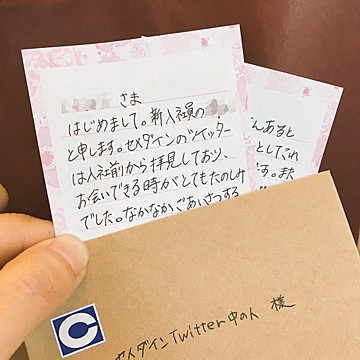 さま
はじめまして。新入社員の
と申します。セメダインのツイッター
は入社前から拝見しており、
お会いできる時がとてもたのしみ
でした。なかなかごあいさつする
んあると
としてこれ
す。また
C
セメダインTwitter中の人 様